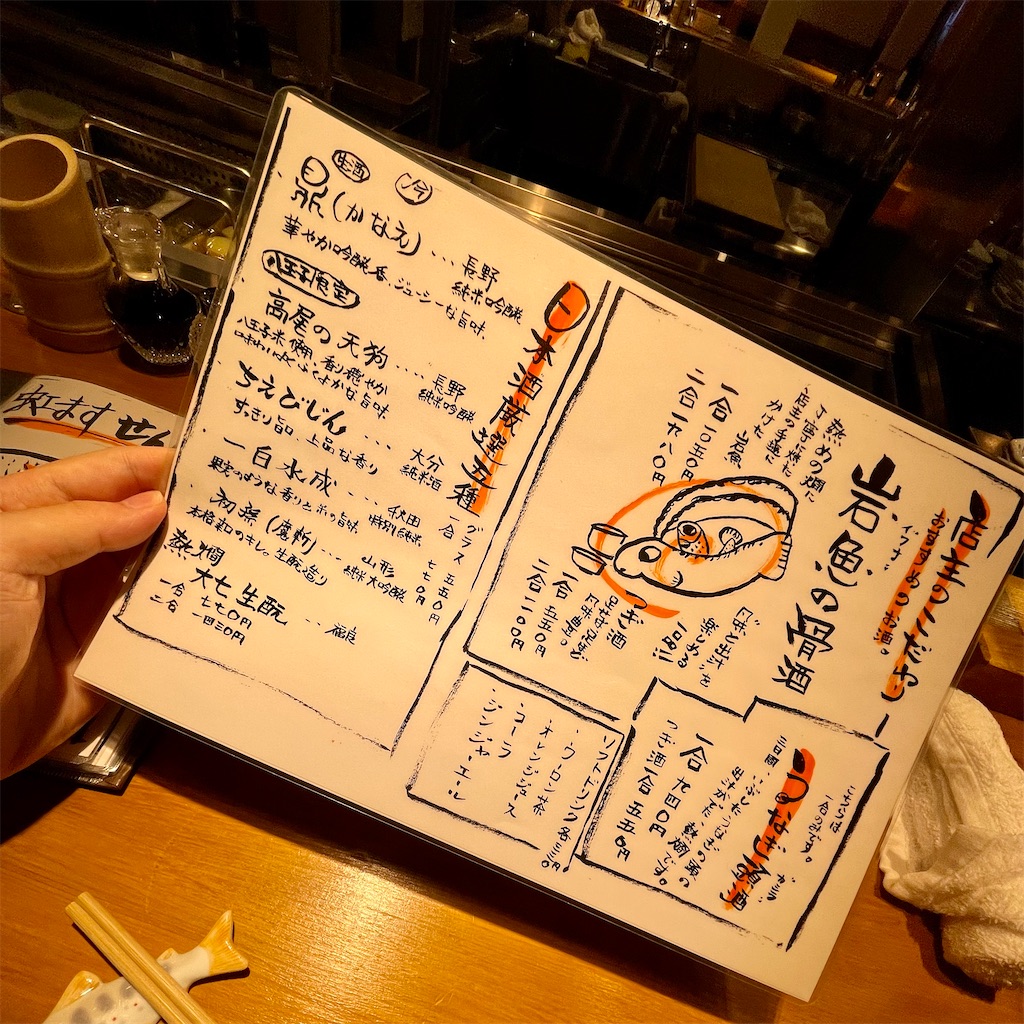 店主のこだわり
おすすめのお酒。
イワナ
岩魚の骨酒
熱めの燗に
丁寧に焼いた
店主の手塩に
かけた
岩魚
一合 一〇五〇円
二合 一九八〇円
一品に
つぎ酒
一合 五五〇円
二合 一一〇〇円
こちらは
一合のみです。
うなぎ骨酒
つぎ酒一合 五五〇円
ソフトドリンク各三三〇円
・ウーロン茶
・オレンジジュース
・コーラ
・ジンジャーエール
日本酒厳選五種
グラス 五五〇円
一合 七七〇円
生酒
冷
鼎(かなえ)...長野
純米吟醸
華やか吟醸香、ジューシーな旨味
八王子限定
高尾の天狗....長野
純米吟醸
八王子米使用、香り穏やか
ちえびじん...大分
純米酒
すっきり旨口、上品な香り
一白水成....秋田
特別純米
初孫(魔斬)...山形
純米大吟醸
本格辛口のキレ。生酛造り
熱燗
大七生酛...福島
一合 七七〇円
二合 一四三〇円
虹ます せん